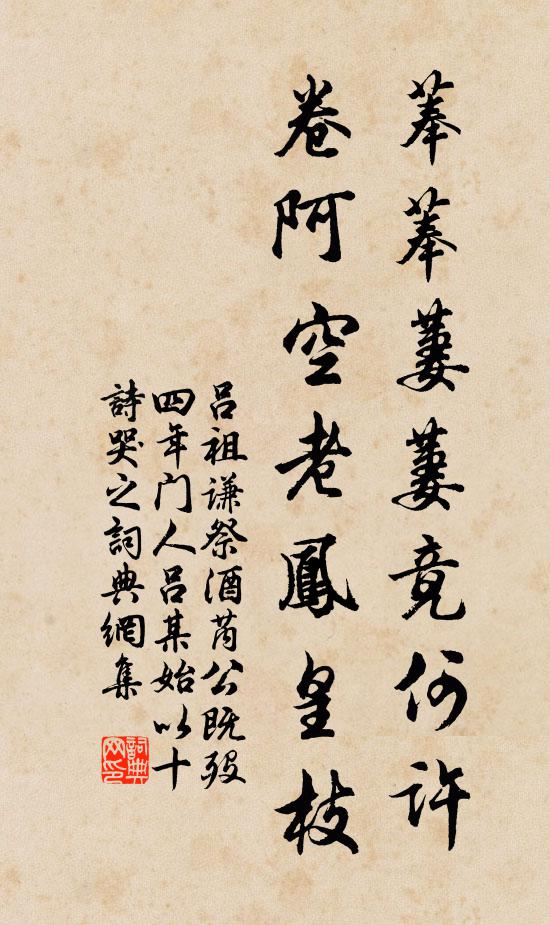 菶菶萋萋竟何許
卷阿空老鳳皇枝
吕祖谦祭酒芮公既殁
四年门人吕某始以十
詩哭之詞典網集
詞典
网印